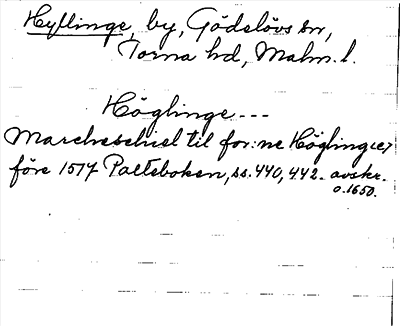 Hyllinge, by, Gödelövs sn,
Torna hd, Malm. l.
Höglinge ---
Marcheschiel til for:ne Höglinge
före 1517 Palteboken, ss. 440, 442. avskr.
o. 1650.